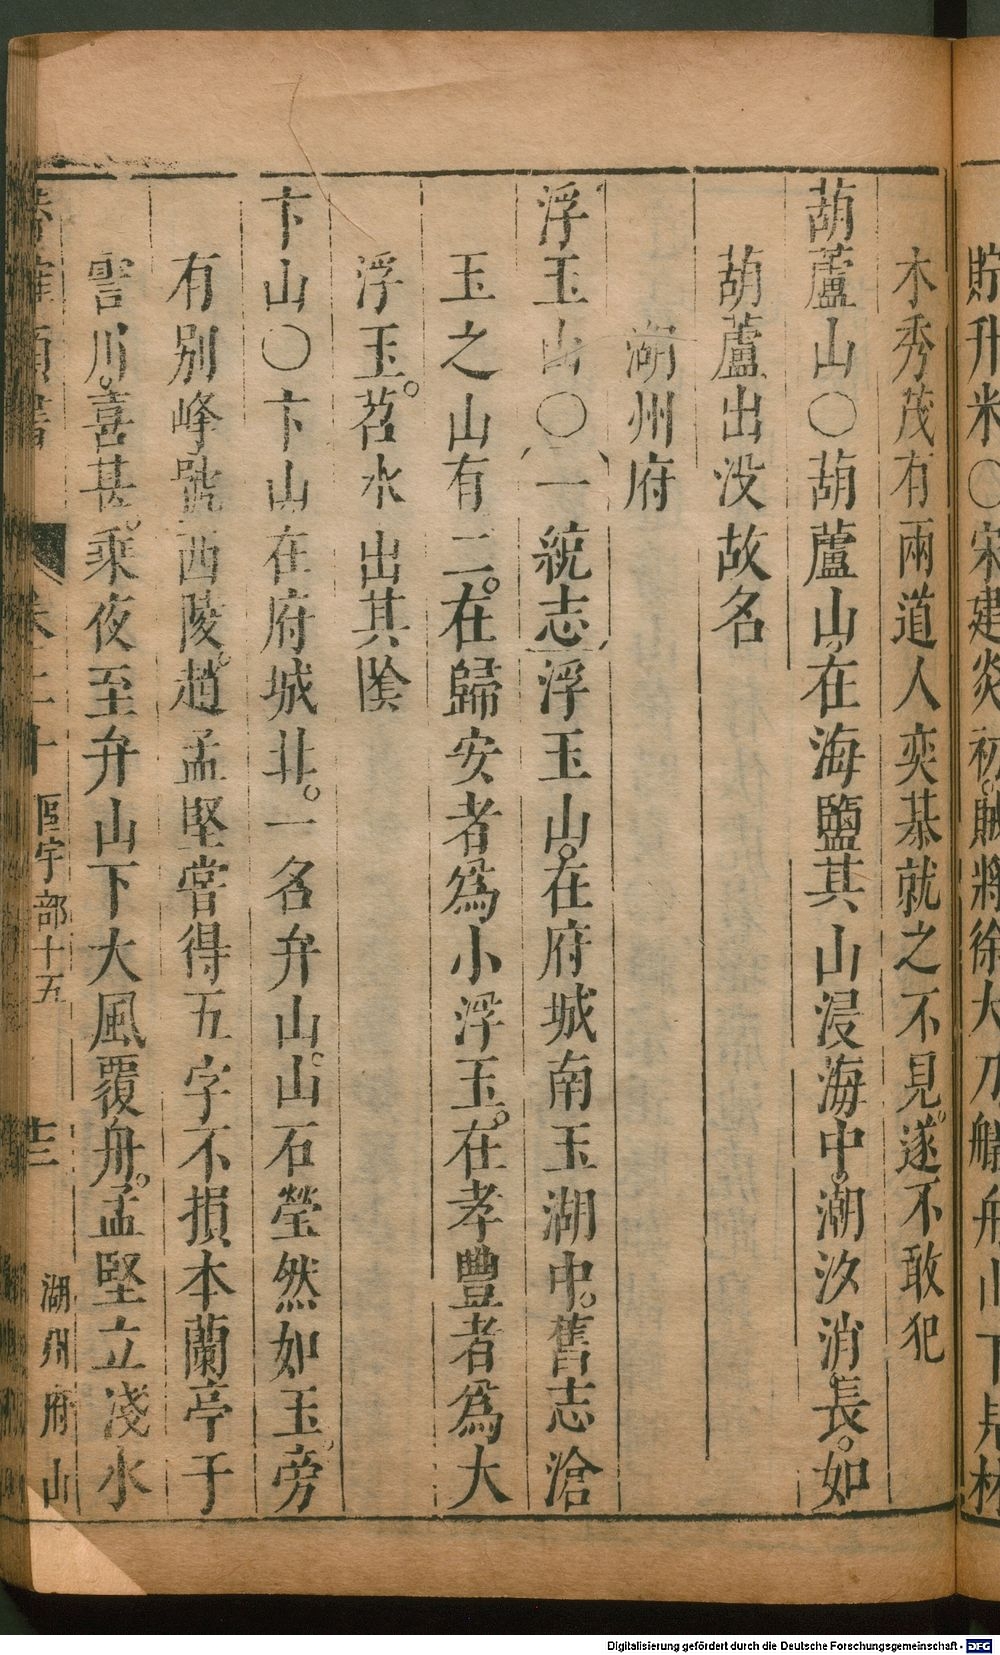 貯升米○宋建炎初。賊將徐大刀艤舟山下見林
木秀茂有兩道人奕棊就之不見。遂不敢犯
葫蘆山○葫蘆山。在海鹽其山浸海中。潮汐消長。如
葫蘆出没故名
湖州府
浮玉山○一統志浮玉山。在府城南玉湖中。舊志滄
玉之山有二。在歸安者爲小浮玉。在孝豐者爲大
浮玉。苕水出其陰
卞山○卞山在府城北。一名弁山。山石瑩然如玉。旁
有别峰號西陵。趙孟堅嘗得五字不損本蘭亭于
霅川。喜甚。乘夜至弁山下大風覆舟。孟堅立淺水
卷二十 區宇部十五 廿三 湖州府山
Digitalisierung gefördert durch die Deutsche Forschungsgemeinschaft - DFG